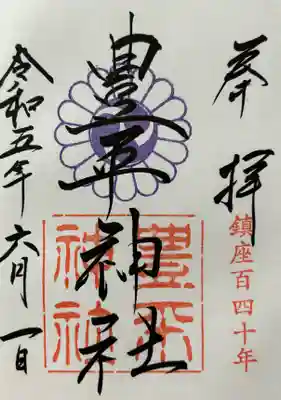 奉拝
鎮座百四十年
豊平神社
豊平
神社
令和五年六月一日